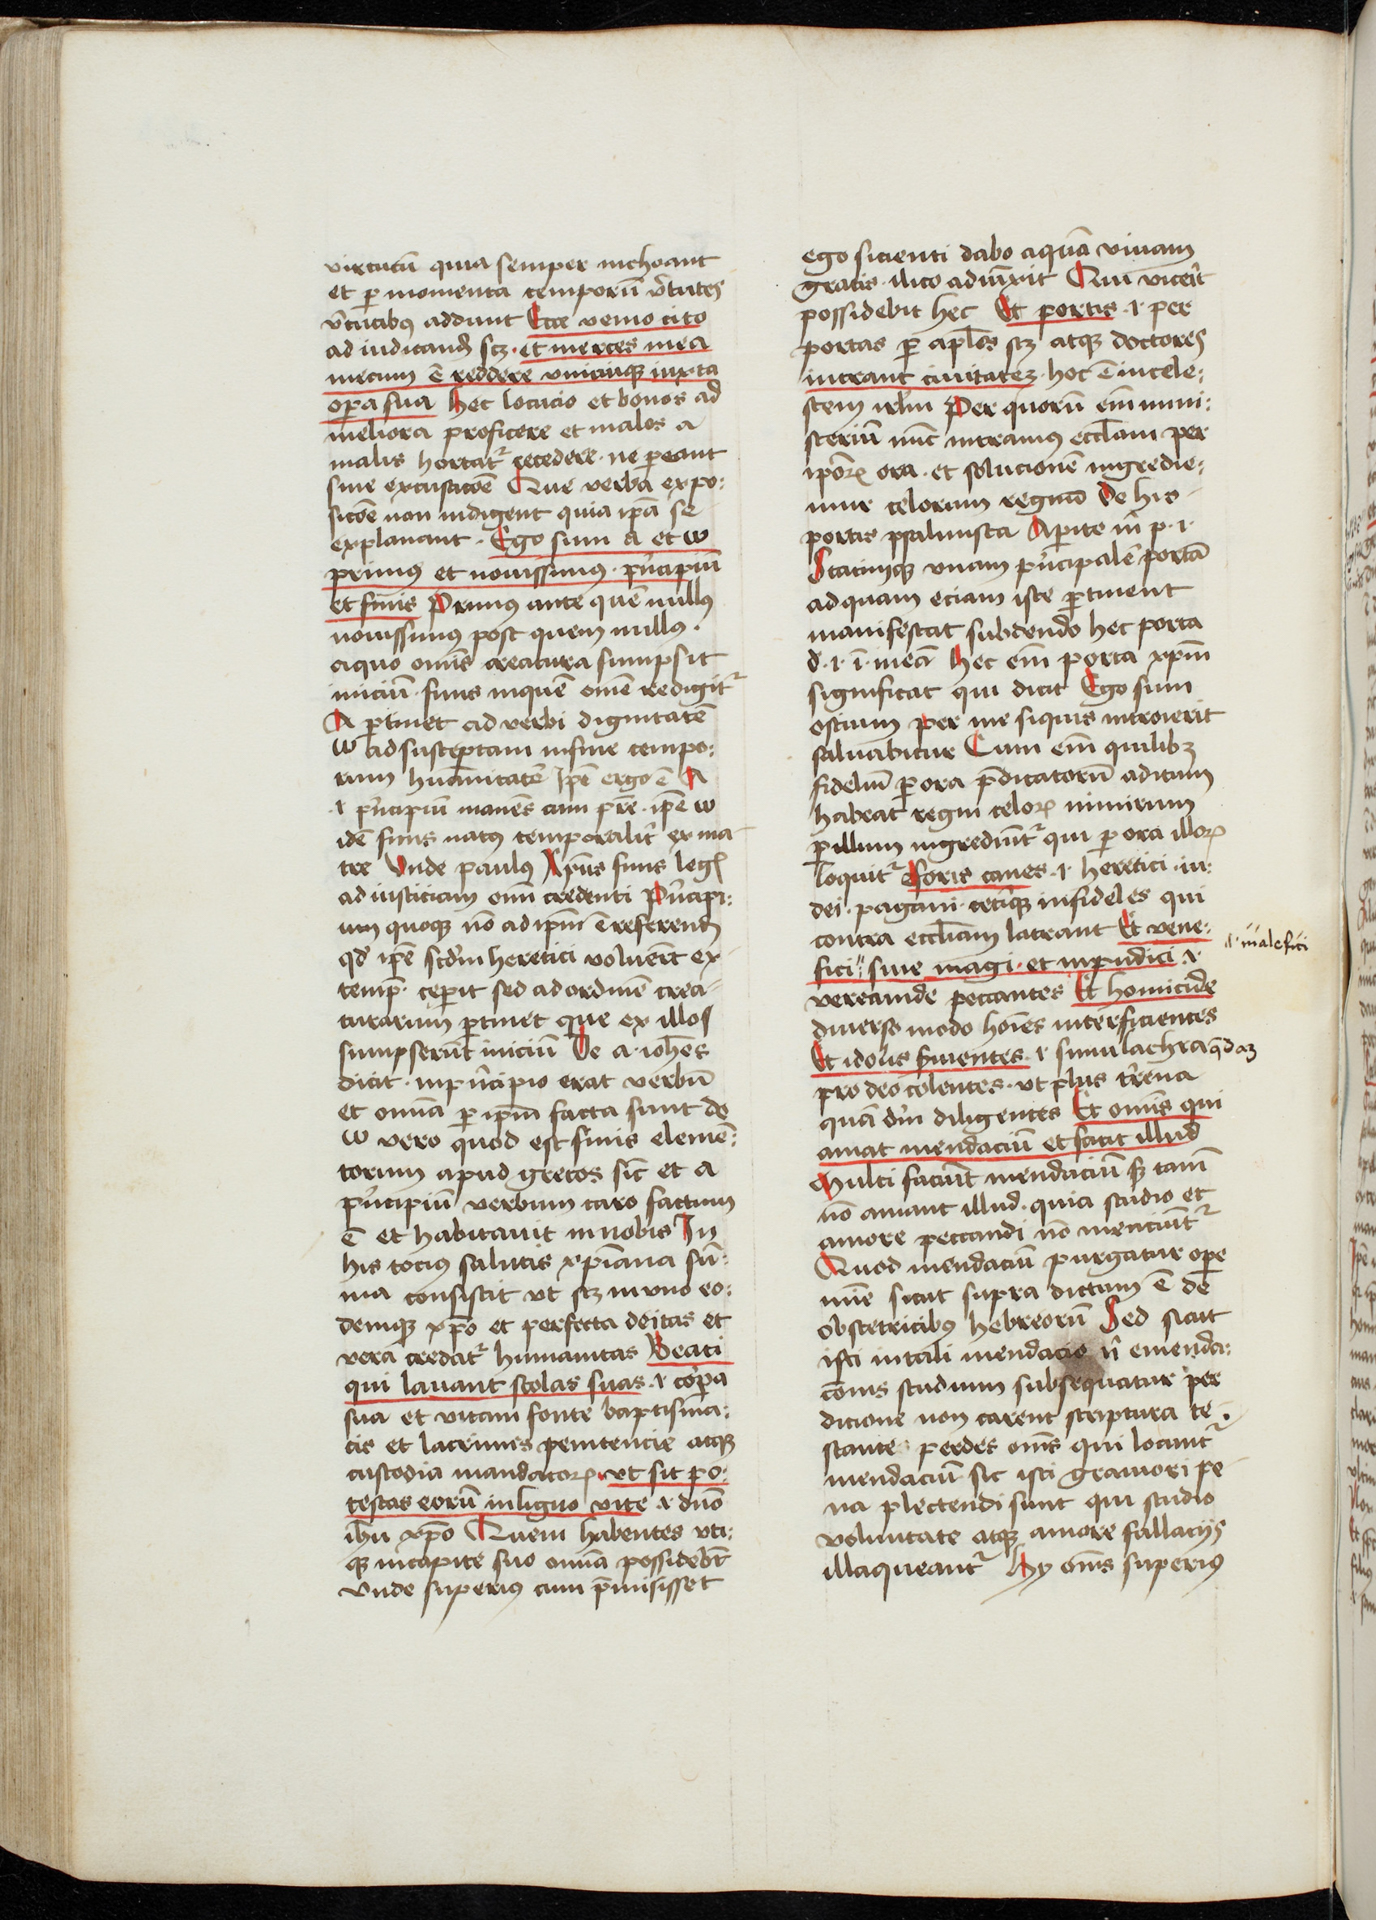 virtutū quia semper inchoant
et ꝑ momenta temporū v̾tutes
v̾tutibꝯ addunt Ecce venio cito
ad iudicand̄ scꝫ · et merces mea
mecum ē reddere vnicuiqꝫ iuxta
oꝑa sua Hec locucio et bonos ad
meliora proficere et malos a
malis hortat᷑ recedere · ne ꝑeant
sine excusacōe Que verba expo:
sicōe non indigent quia ip̄a se
explanant · Ego sum a et ω
primꝯ et nouissimꝯ · pⁱncipiū
et finis Primꝯ ante quē nullꝯ
nouissimꝯ post quem nullꝯ ·
a quo om̄is creatura sumpsit
iniciū · finis in quē om̄e redigit᷑
A ꝑtinet ad verbi dignitatē
ω ad susceptam in fine tempo:
rum humanitatē Ip̄e ergo ē A
·i· pⁱncipiū manēs cum pr̄e · ip̄e ω
idē finis natꝯ temporalit̾ ex ma
tre Vnde paulꝯ Xp̄us finis leḡ
ad iusticiam om̄i credenti Pⁱncipi:
um quoqꝫ nō ad ip̄m ē referend̄
qd̾ ip̄e scd̄m heretici voluer̄t ex
temꝑ · ceꝑit sed ad ordinē crea
turarum ꝑtinet que ex illo
sumpserūt iniciū De a · ioh̄es
dicit · in pⁱncipio erat verbū
et omīa ꝑ ip̄m facta sunt de
ω vero quod est finis elemē:
torum apud grecos sic̄ et a
pⁱncipiū verbum caro factum
ē et habitauit in nobis In
his tociꝯ salutis xp̄iana sū:
ma consistit vt scꝫ in vno eo:
demqꝫ xp̄o et perfecta deitas et
vera credat᷑ humanitas Beati
qui lauant stolas suas ·i· corꝑa
sua et vitam fonte baptisma:
tis et lacrimis penitencie atqꝫ
custodia mandatorꝝ · vt sit po:
testas eorū in ligno vite ·i· dn̄o
ih̄u xp̄o Quem habentes vti:
qꝫ in capite suo omīa possideb̄t
Vnde superiꝯ cum p̄misisset
ego sicienti dabo aquā viuam
gratis · ilico adiūxit Qui vicer̄it
possidebit hec Et portis ·i· per
portas ꝑ apl̄os scꝫ atqꝫ doctores
intrant ciuitatez · hoc ē in cele:
stem ir̄lm Per quorū em̄ mini:
steriū nūc intramꝯ eccl̄iam per
ip̄orꝝ ora · et solucionē ingredie:
mur celorum regnū De his
portis psalmista Aperite m̄ p · i ·
Statimqꝫ vnam pⁱncipalē portā
ad quam eciam iste ꝑtinent
manifestat subdendo hec porta
d · i · ī · meā Hec em̄ porta xp̄m
significat qui dicit Ego sum
ostium per me siquis introierit
saluabitur Cum em̄ quilibꝫ
fideliū ꝑ ora p̄dicatorū aditum
habeat regni celorꝝ nimirum
ꝑ illum ingrediūt᷑ qui ꝑ ora illorꝝ
loquit᷑ Foris canes ·i· heretici · iu:
dei · pagani · ceteriqꝫ infideles qui
contra eccl̄iam latrant Et vene:
fici" siue magi · et inpudici ·i·
"malefici
verecunde peccantes Et homicide
diuerso modo hoīes interficientes
Et idolis s̾uientes ·i· simulachra
pro deo colentes · vt plꝯ t̾rena
quā dm̄ diligentes Et om̄is qui
amat mendaciū et facit illud
Multi faciūt mendaciū sꝫ tam̄
nō amant illud · quia studio et
amore peccandi nō menciūt᷑
Quod mendaciū purgatur oꝑe
mīe sicut supra dictum ē de
obstetricibꝯ hebreorū Sed sicut
isti in tali mendacio n̄ emenda:
cōnis studium subsequatur per
dicione non carent scriptura te ·
stante perdes om̄s qui locunt᷑
mendaciū sic isti grauiori pe
na plectendi sunt qui studio
voluntate atqꝫ amore fallacijs
illaqueant᷑ Hy om̄s superiꝯ